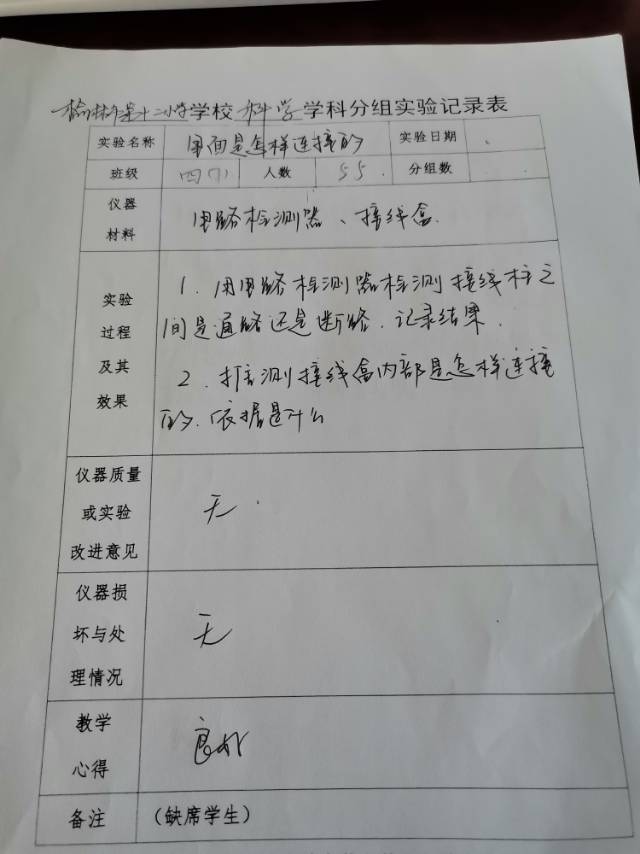 榆林市第十二小学学校 科学 学科分组实验记录表
实验名称 里面是怎样连接的 实验日期
班级 四(1) 人数 55 分组数
仪器
材料
电路检测器、接线盒
实验
过程
及其
效果
1.用电路检测器检测接线柱之
间是通路还是断路.记录结果.
2.推测接线盒内部是怎样连接
的.依据是什么
仪器质量
或实验
改进意见
无
仪器损
坏与处
理情况
无
教学
心得
良好
备注 (缺席学生)